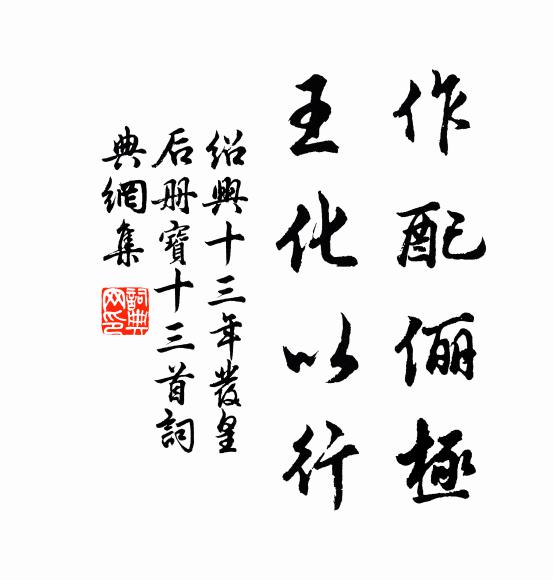 作配儷極
王化以行
紹興十三年發皇
后冊寶十三首詞
典網集
詞典網印